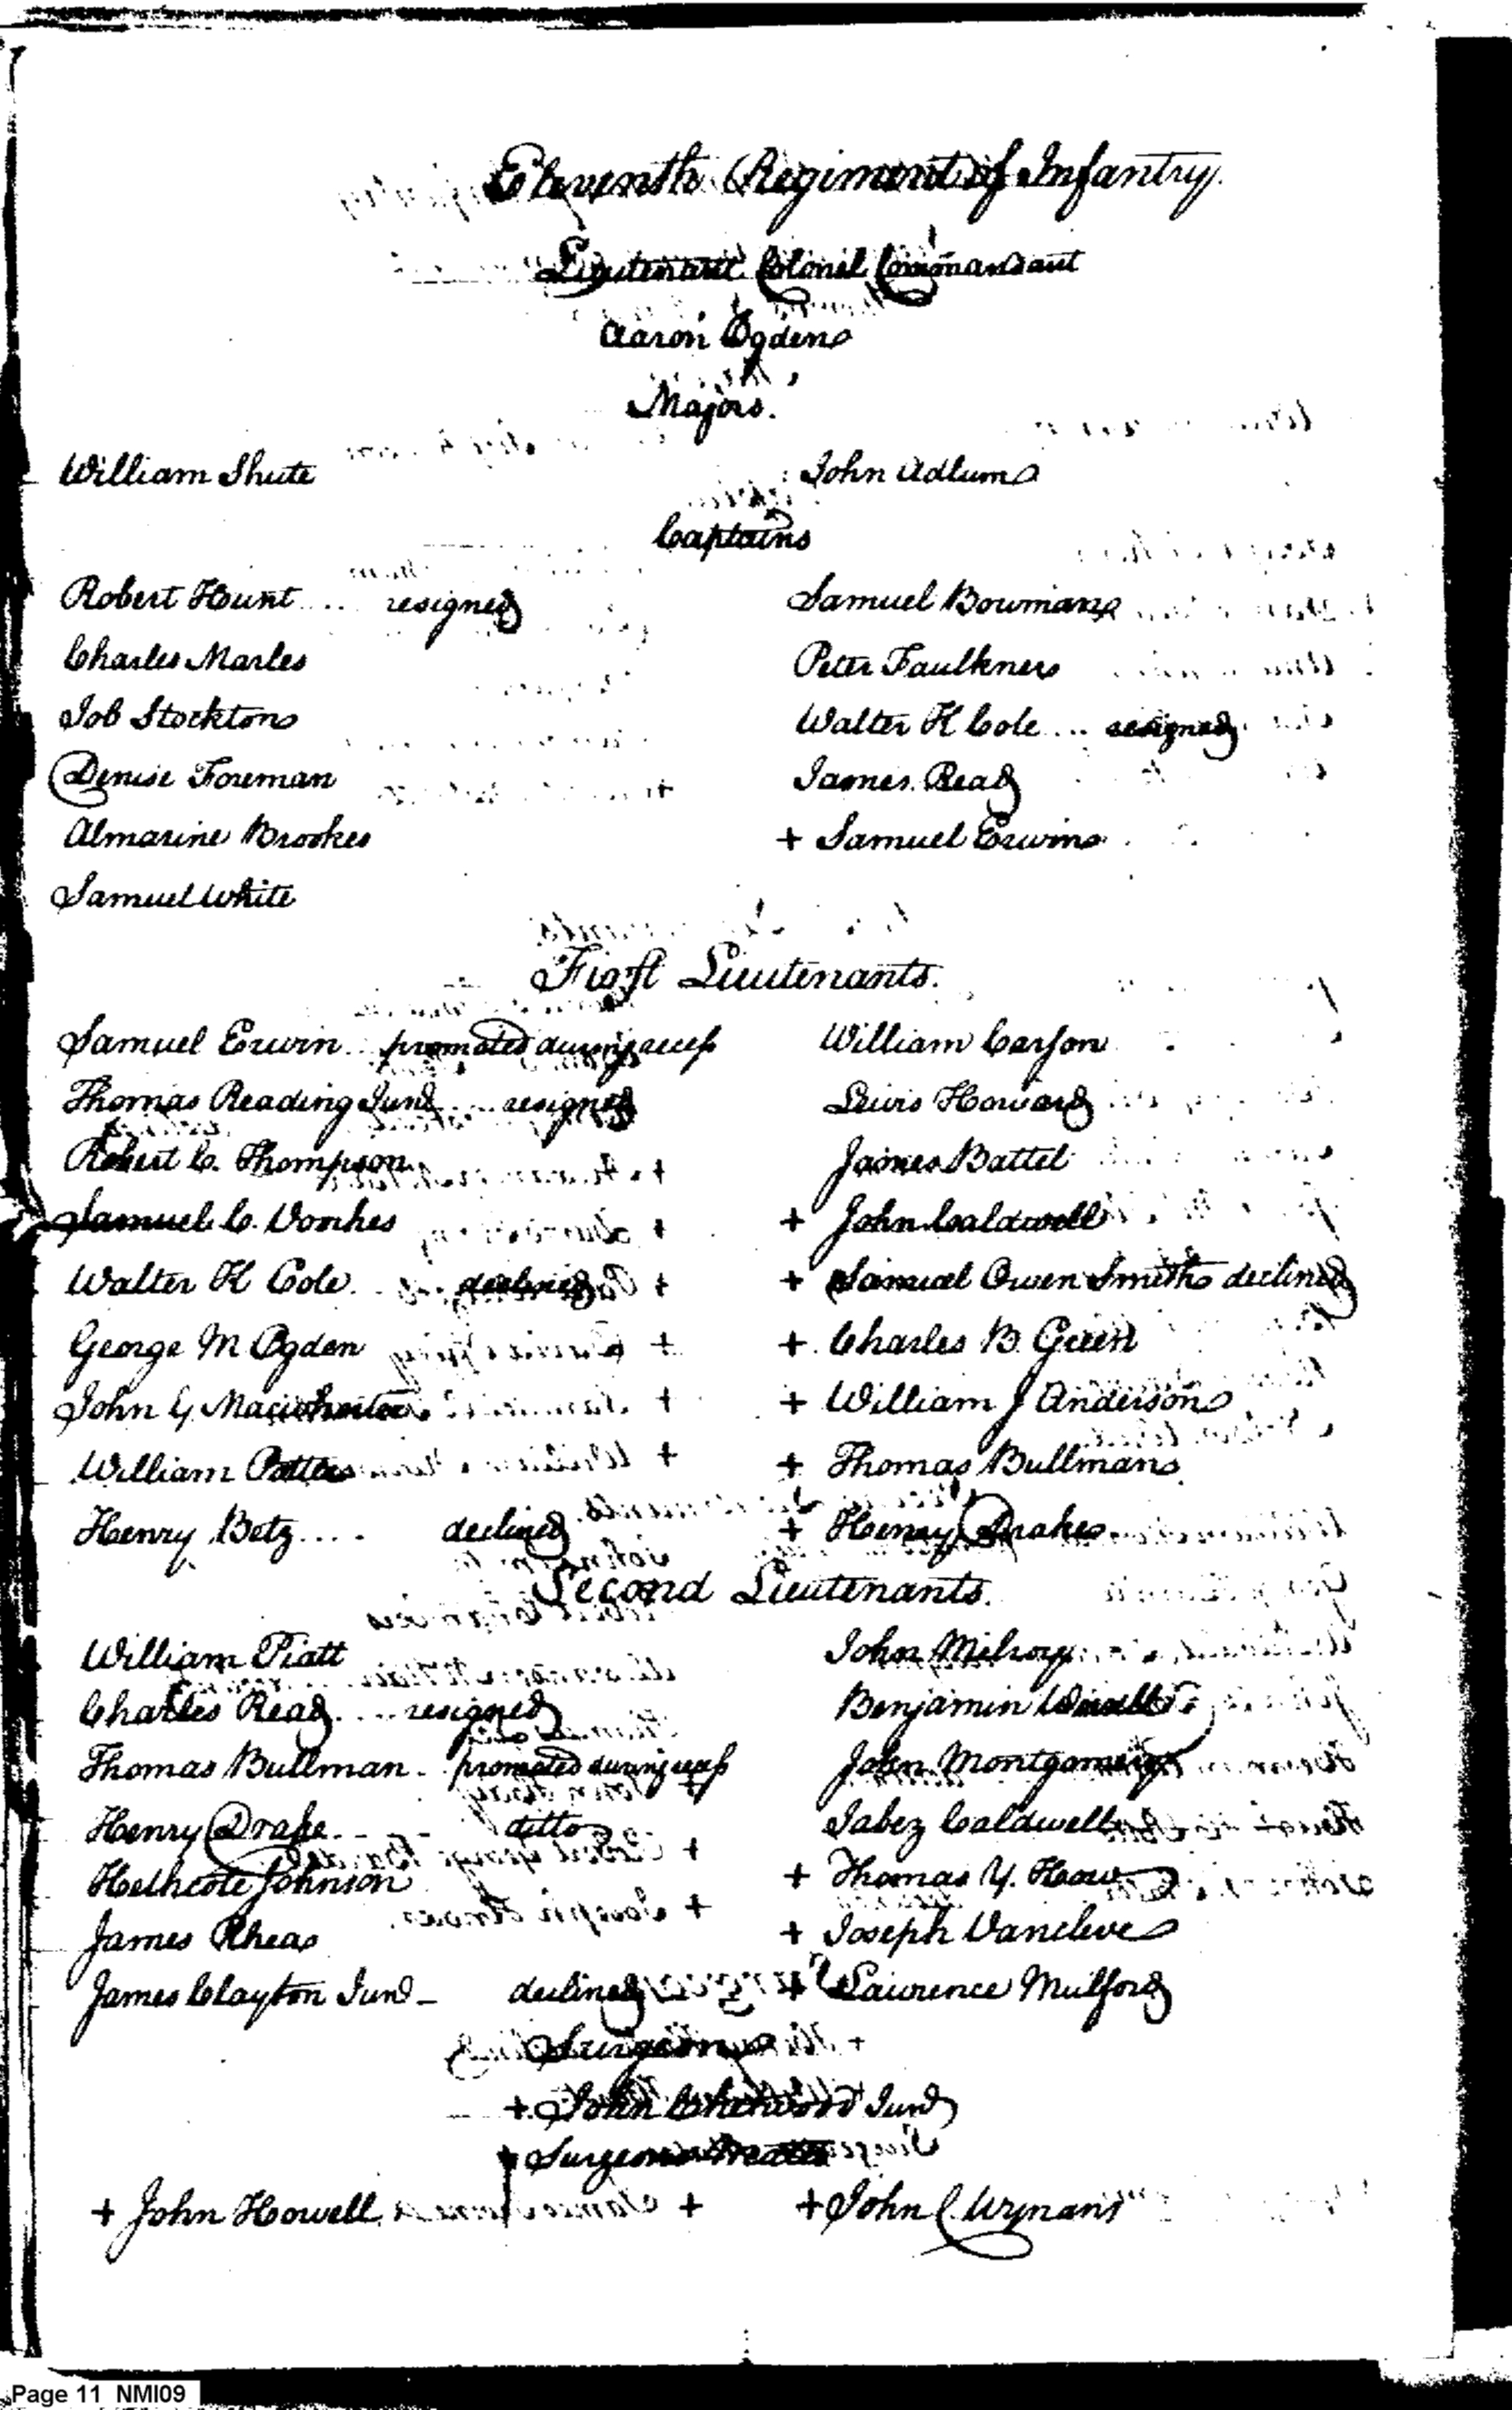 Eleventh Regiment of Infantry.
Lieutenant Colonel Commandant
Aaron Ogden
Majors.
William Shute John Adlum
Captains
Robert Hunt .... resigned Samuel Bowman
Charles Marles Peter Faulkner
Job Stockton Walter K Cole ... resigned
Denise Foreman James Read
Almarine Brookes + Samuel Erwin
Samuel White
First Lieutenants.
Samuel Erwin .. promoted during recess William Carson
Thomas Reading Junr .... resigned Lewis Howard
Robert C. Thompson James Battel
Samuel C. Vorhes + John Caldwell
Walter K Cole .. declined + Samuel Owen Smith declined
George M Ogden + Charles B. Green
John G. + William J Anderson
William Potter + Thomas Bullman
Henry Betz .... declined + Henry Drake
Second Lieutenants.
William Piatt John Milroy
Charles Read .... resigned Benjamin
Thomas Bullman - promoted during recess John Montgomery
Henry Drake - - - ditto Jabez Caldwell
Hethcote Johnson + Thomas Y. How
James Rhea + Joseph Vancleve
James Clayton Junr - declined + Lawrence Mulford
Surgeon
+ John Chetwood Junr
Surgeons Mates
+ John Howell + John C. Wynans
Page 11 NMI09